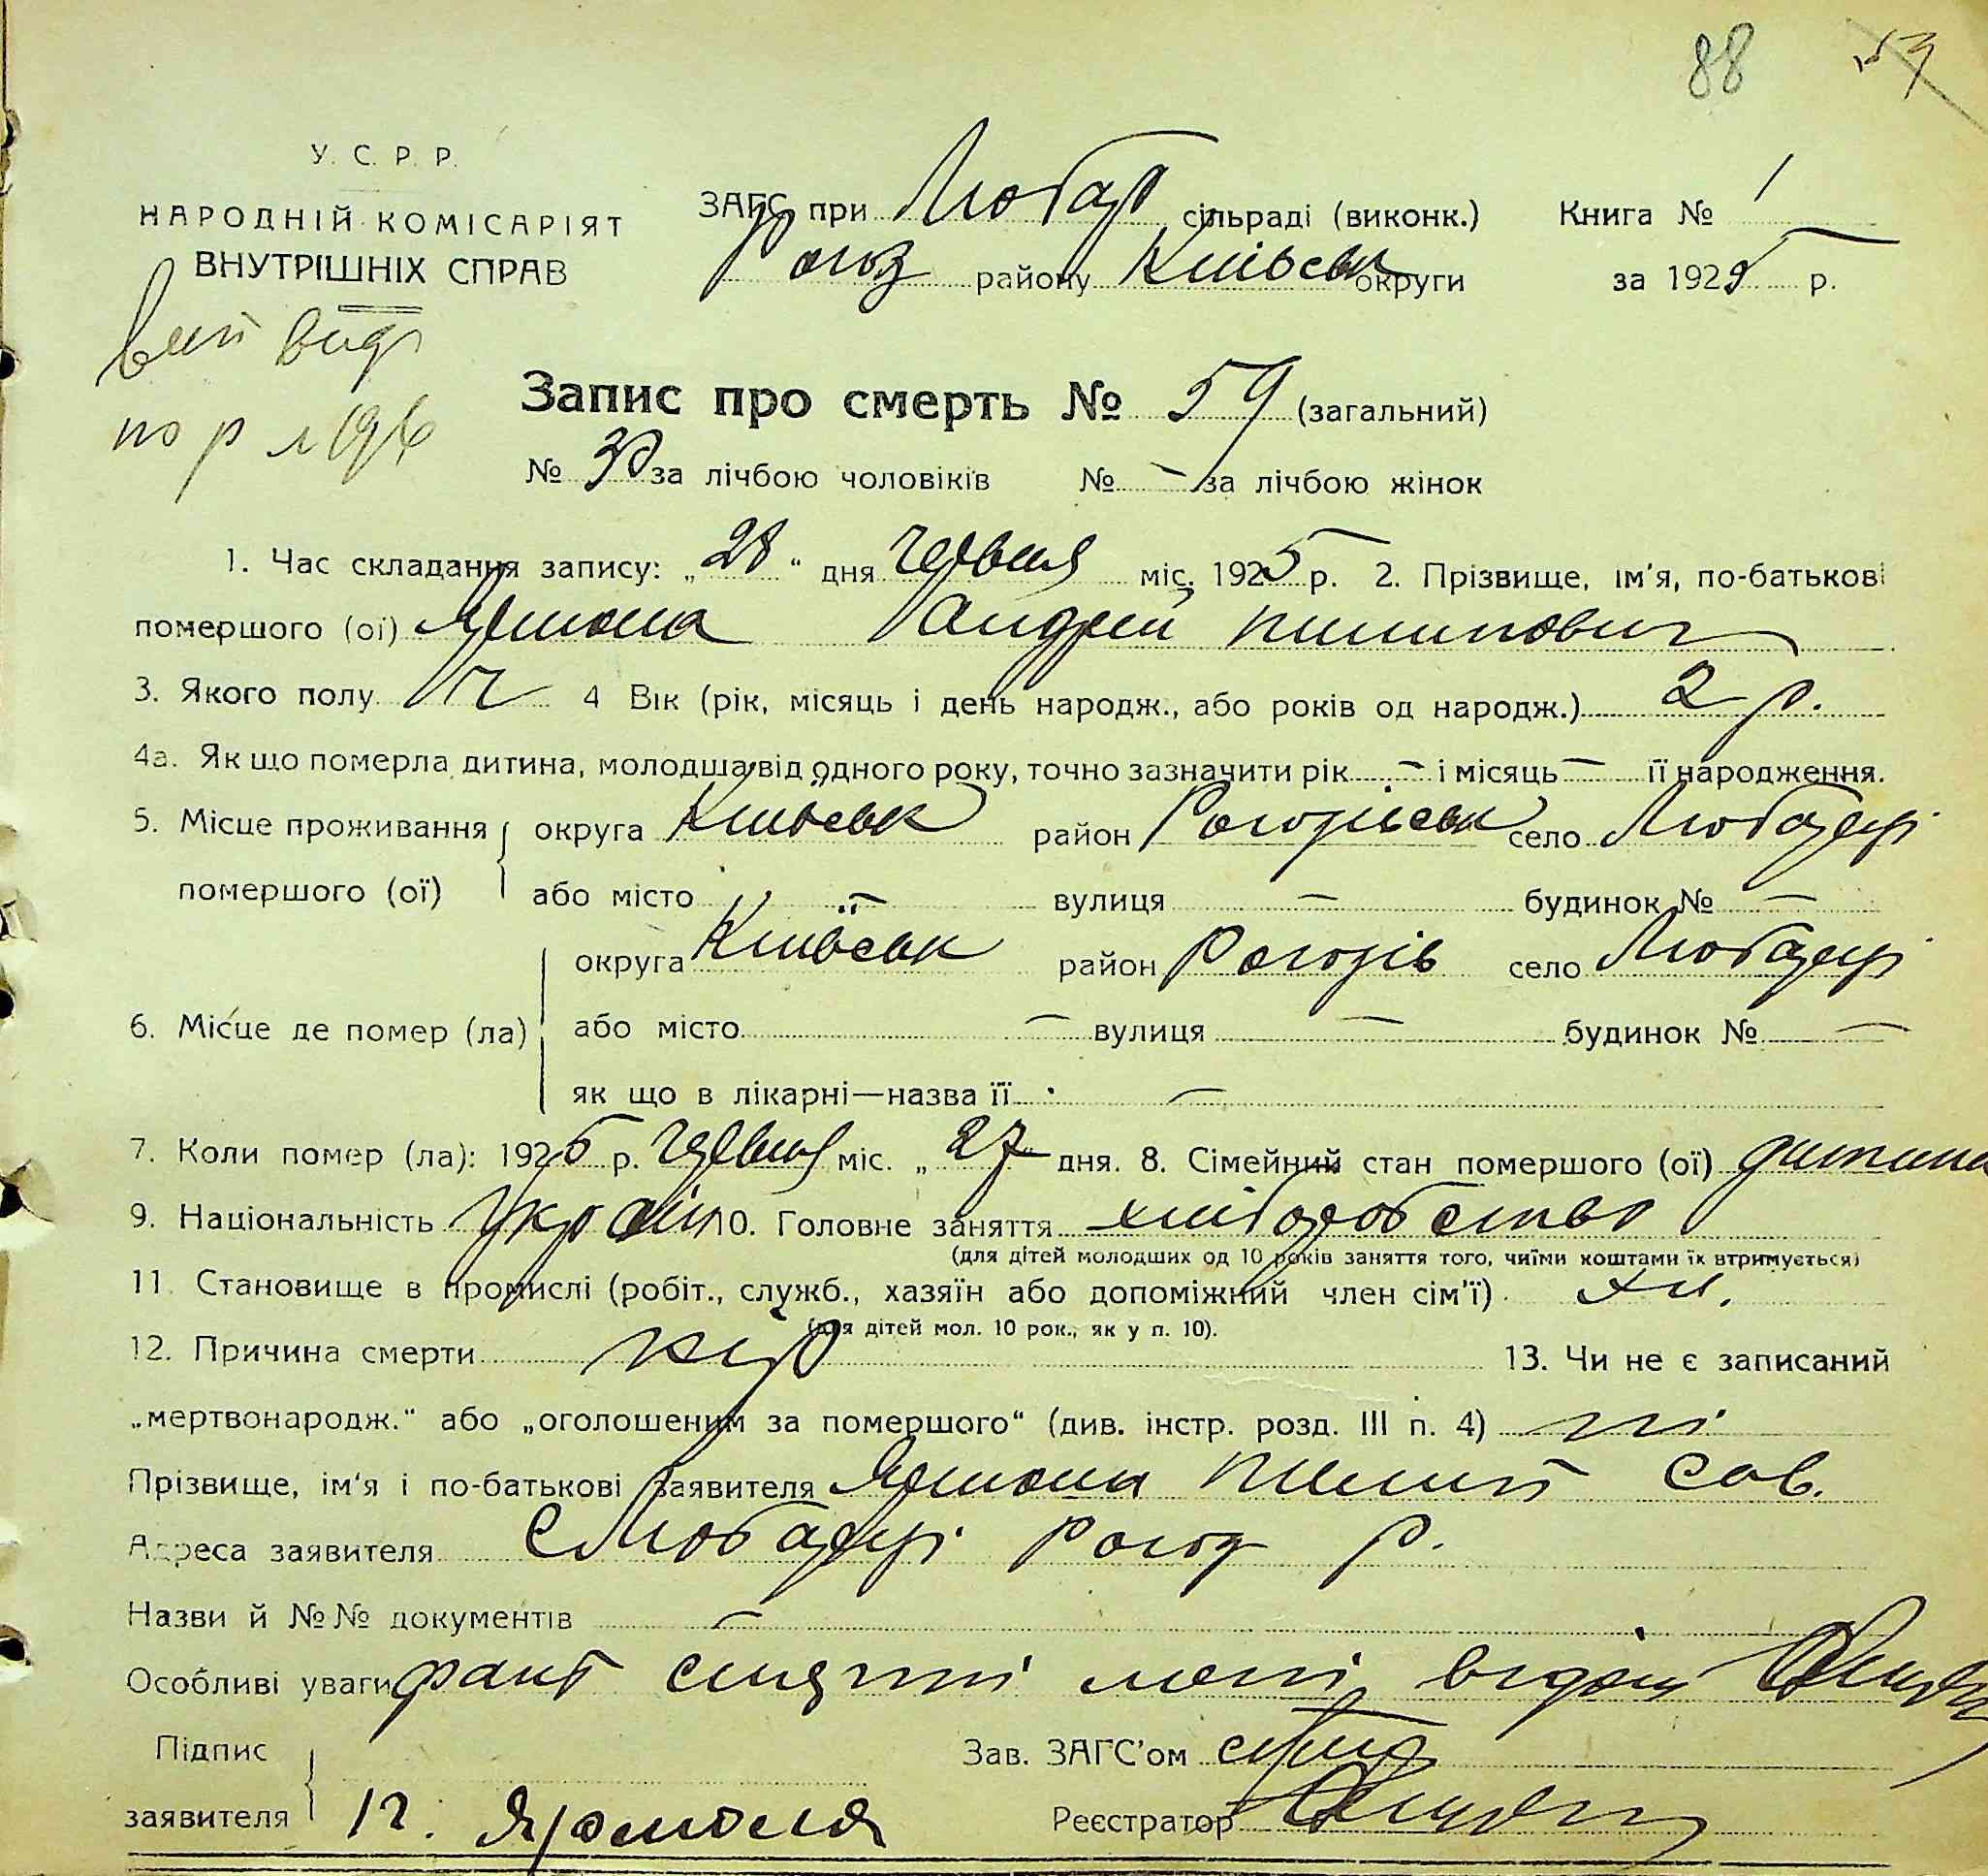 88 59
У. С. Р. Р.
НАРОДНІЙ КОМІСАРІЯТ
ВНУТРІШНІХ СПРАВ
ЗАГС при Любар сільраді (виконк.) Книга № 1
Рогоз району Київськ округи за 1925 р.
Запис про смерть № 59 (загальний)
№ 30 за лічбою чоловіків № — за лічбою жінок
1. Час складання запису: „28“ дня червня міс. 1925 р. 2. Прізвище, ім'я, по-батькові
помершого (ої) Андрей Пилипович
3. Якого полу ч 4 Вік (рік, місяць і день народж., або років од народж.) 2 р.
4а. Як що померла дитина, молодша від одного року, точно зазначити рік — і місяць — її народження.
5. Місце проживання округа Київськ район Рогозівськ село Любарці
помершого (ої) або місто — вулиця — будинок № —
округа Київськ район Рогозів село Любарці
6. Місце де помер (ла) або місто — вулиця — будинок № —
як що в лікарні—назва її —
7. Коли помер (ла): 1925 р. червня міс. „27“ дня. 8. Сімейний стан помершого (ої) дитина
9. Національність україн 10. Головне заняття хліборобство
(для дітей молодших од 10 років заняття того, чиїми коштами їх втримується)
11. Становище в промислі (робіт., служб., хазяїн або допоміжний член сім'ї) хл.
(для дітей мол. 10 рок., як у п. 10).
12. Причина смерти кір 13. Чи не є записаний
„мертвонародж.“ або „оголошеним за помершого“ (див. інстр. розд. III п. 4) ні
Прізвище, ім'я і по-батькові заявителя Пилип Сав.
Адреса заявителя с Любарці Рогоз р.
Назви й №№ документів —
Особливі уваги факт смерті мені відом
Підпис Зав. ЗАГС'ом
заявителя П. Ярмоля Реєстратор